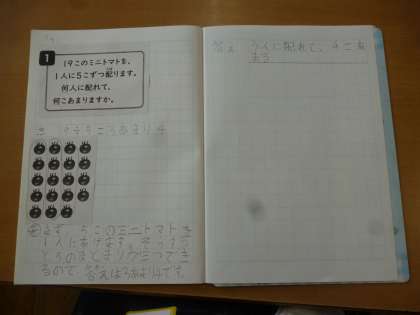 1
19このミニトマトを、
1人に5こずつ配ります。
何人に配れて、
何こあまりますか。
まず、5このミニトマトを
1人にあげます。そうする
と5のまとまりが三つでき
るので、答えは3あまり4です。
答え 3人に配れて、4こあ
まる